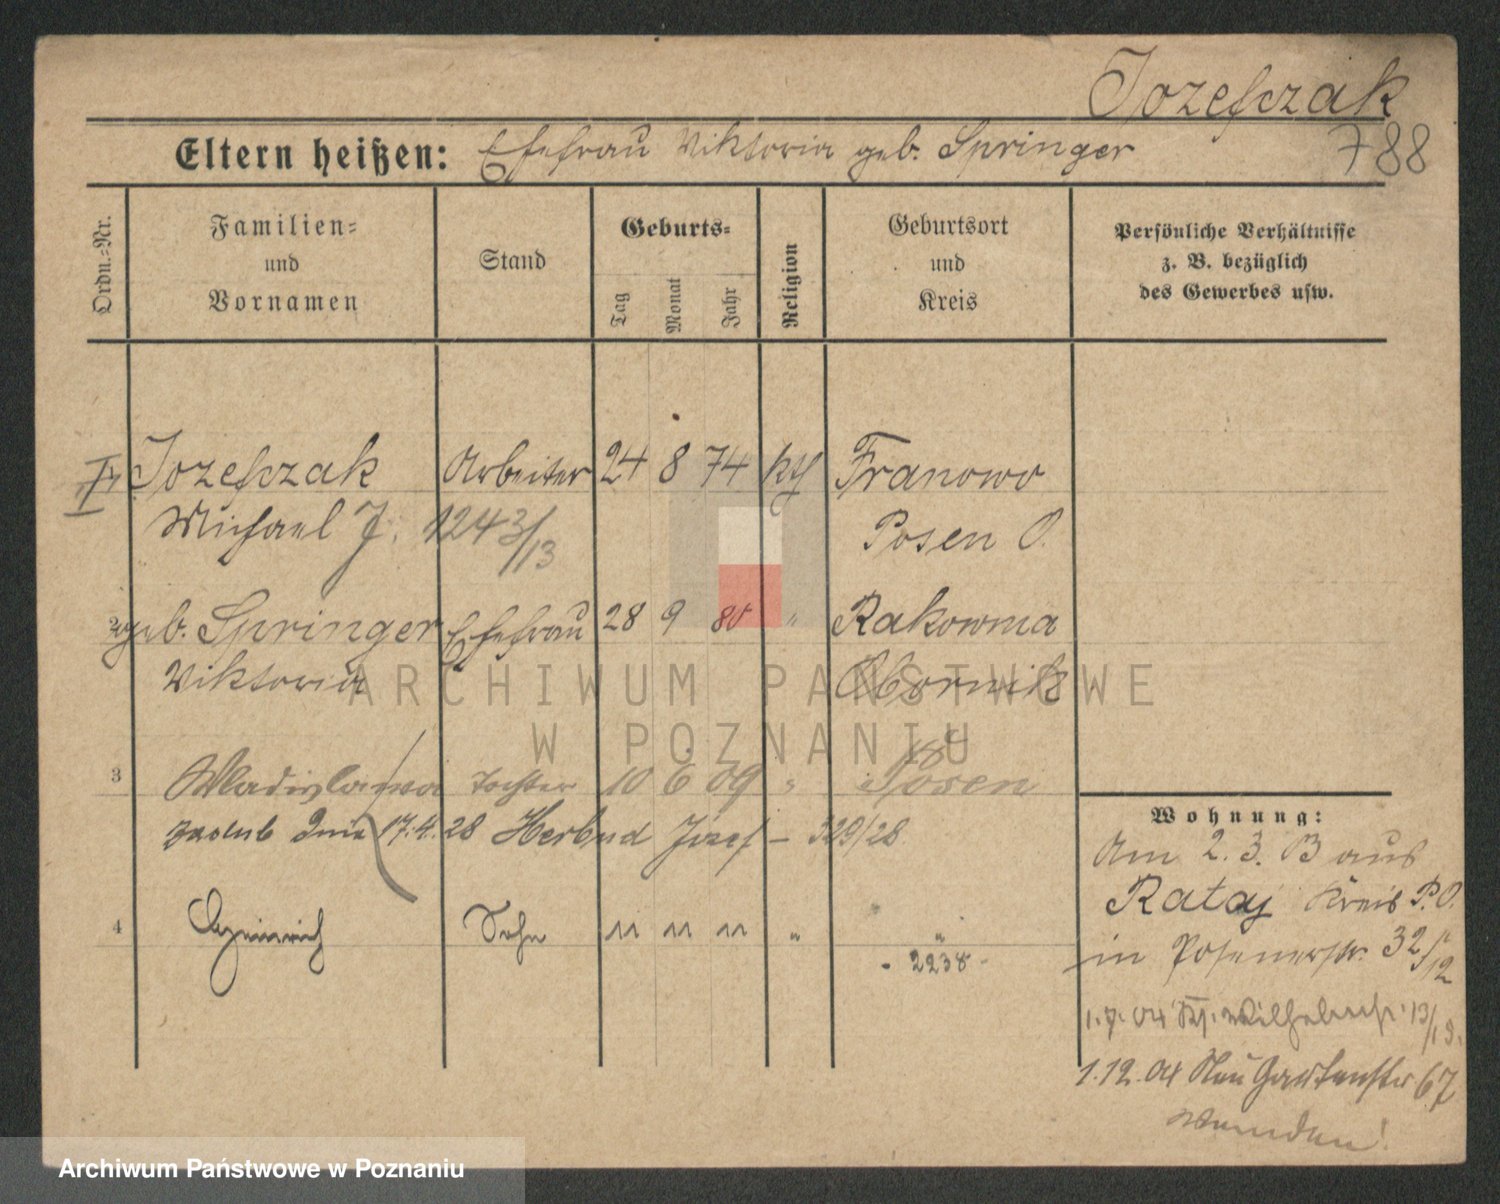 Jozefczak
788
Eltern heißen: Ehefrau Viktoria geb. Springer
Ordn.=Nr.
Familien=
und
Vornamen
Stand
Geburts=
Tag
Monat
Jahr
Religion
Geburtsort
und
Kreis
Persönliche Verhältnisse
z. B. bezüglich
des Gewerbes usw.
Jozefczak Arbeiter 24 8 74 kth Franowo
Michael J. 1243/13 Posen O.
2 geb. Springer Ehefrau 28 9 80 " Rakowma
Viktoria Obornik
3 Wladislawa Tochter 10 6 09 " Posen
17.4.28 Józef - 329/28
4 Heinrich Sohn 11 11 11 " "
- 2238 -
Wohnung:
Am 2. 3. 13 aus
Rataj Kreis P.O.
in Posenerstr. 32/12
1.7.04 13/19.
1.12.04 Neu Gartenstr 67
Wenden!
ARCHIWUM PAŃSTWOWE
W POZNANIU
Archiwum Państwowe w Poznaniu